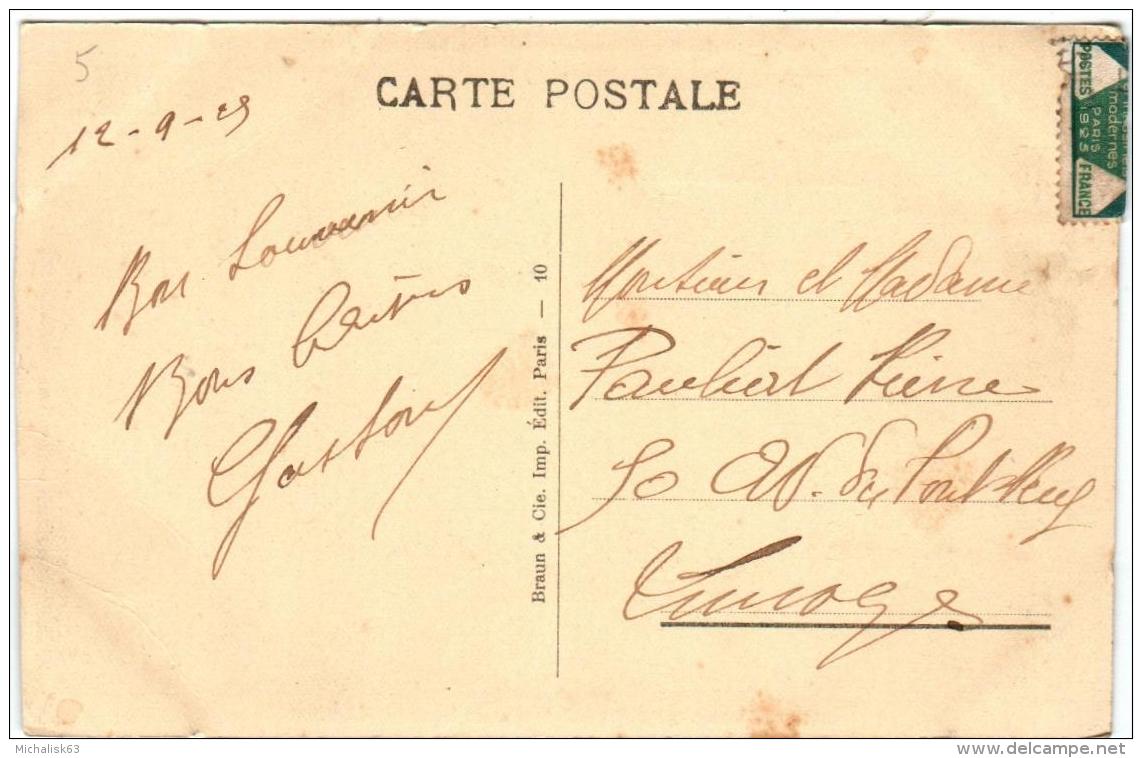 5
CARTE POSTALE
12-9-25
Bon Souvenir
Bons Baisers
Gaston
Braun & Cie. Imp. Édit. Paris — 10
Monsieur et Madame
Pierre
50 Av. du Pont Neuf
Limoges
POSTES 1925 FRANCE
modernes
PARIS
Michalisk63
delcampe.net